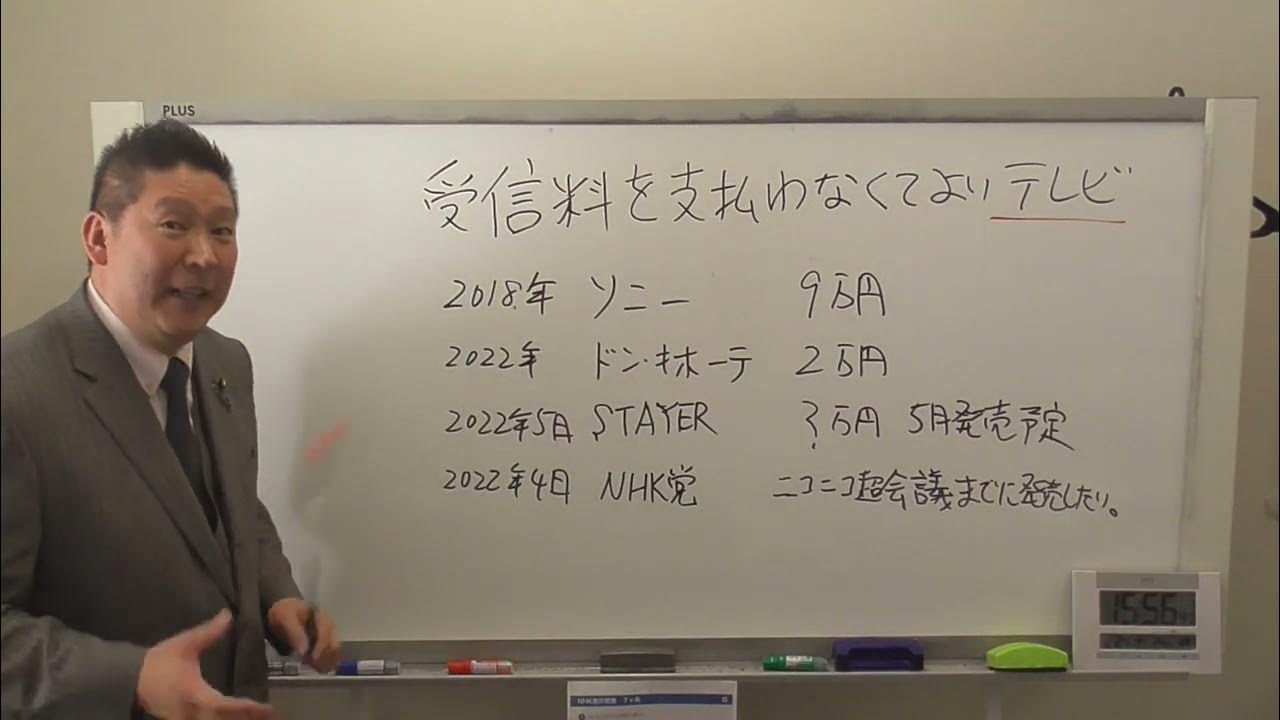 PLUS
受信料を支払わなくてよいテレビ
2018年 ソニー 9万円
2022年 ドン・キホーテ 2万円
2022年5月 STAYER ?万円 5月発売予定
2022年4月 NHK党 ニコニコ超会議までに発売したい。
15:56